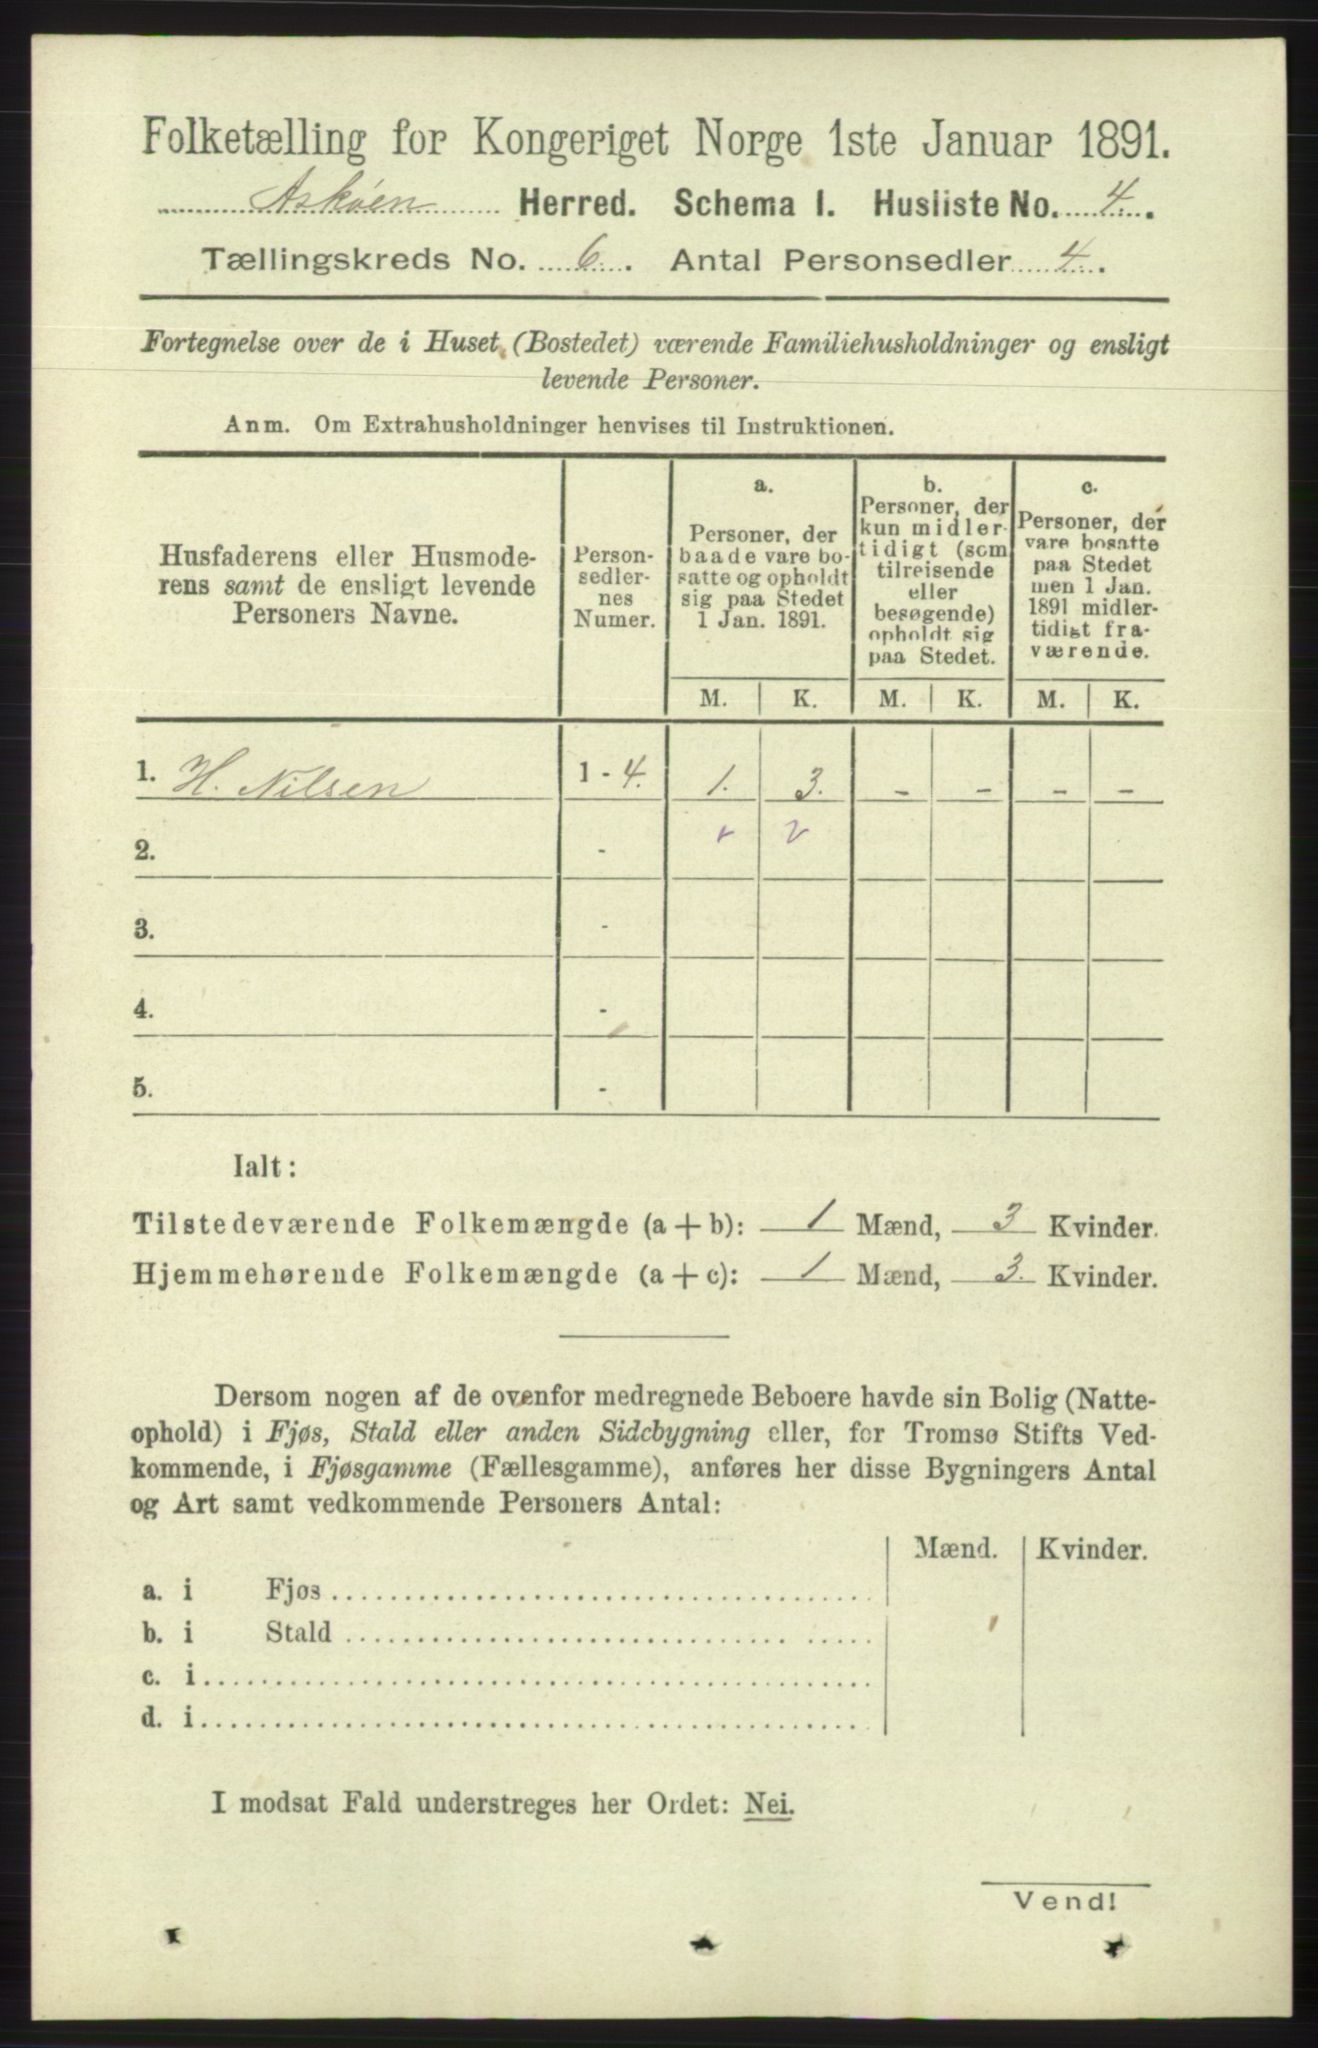 Folketælling for Kongeriget Norge 1ste Januar 1891.
Askøen Herred. Schema I. Husliste No. 4.
Tællingskreds No. 6. Antal Personsedler 4.
Fortegnelse over de i Huset (Bostedet) værende Familiehusholdninger og ensligt
levende Personer.
Anm. Om Extrahusholdninger henvises til Instruktionen.
Husfaderens eller Husmode-
rens samt de ensligt levende
Personers Navne.
Person-
sedler-
nes
Numer.
a.
Personer, der
baade vare bo-
satte og opholdt
sig paa Stedet
1 Jan. 1891.
b.
Personer, der
kun midler-
tidigt (som
tilreisende
eller
besøgende)
opholdt sig
paa Stedet.
c.
Personer, der
vare bosatte
paa Stedet
men 1 Jan.
1891 midler-
tidigt fra-
værende.
M. K. M. K. M. K.
1. H. Nilsen 1 - 4. 1. 3. - - - -
2. -
3. -
4. -
5. -
Ialt:
Tilstedeværende Folkemængde (a + b): 1 Mænd, 3 Kvinder.
Hjemmehørende Folkemængde (a + c): 1 Mænd, 3. Kvinder.
Dersom nogen af de ovenfor medregnede Beboere havde sin Bolig (Natte-
ophold) i Fjøs, Stald eller anden Sidebygning eller, for Tromsø Stifts Ved-
kommende, i Fjøsgamme (Fællesgamme), anføres her disse Bygningers Antal
og Art samt vedkommende Personers Antal:
Mænd. Kvinder.
a. i Fjøs
b. i Stald
c. i
d. i
I modsat Fald understreges her Ordet: Nei.
Vend!